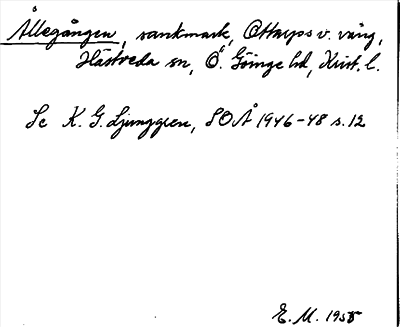 Ållegången, sankmark, Ottarps v. väng,
Hästveda sn, Ö. Göinge hd, Krist. l.
Se K. G. Ljunggren, SOÅ 1946-48 s. 12
E. M. 1955